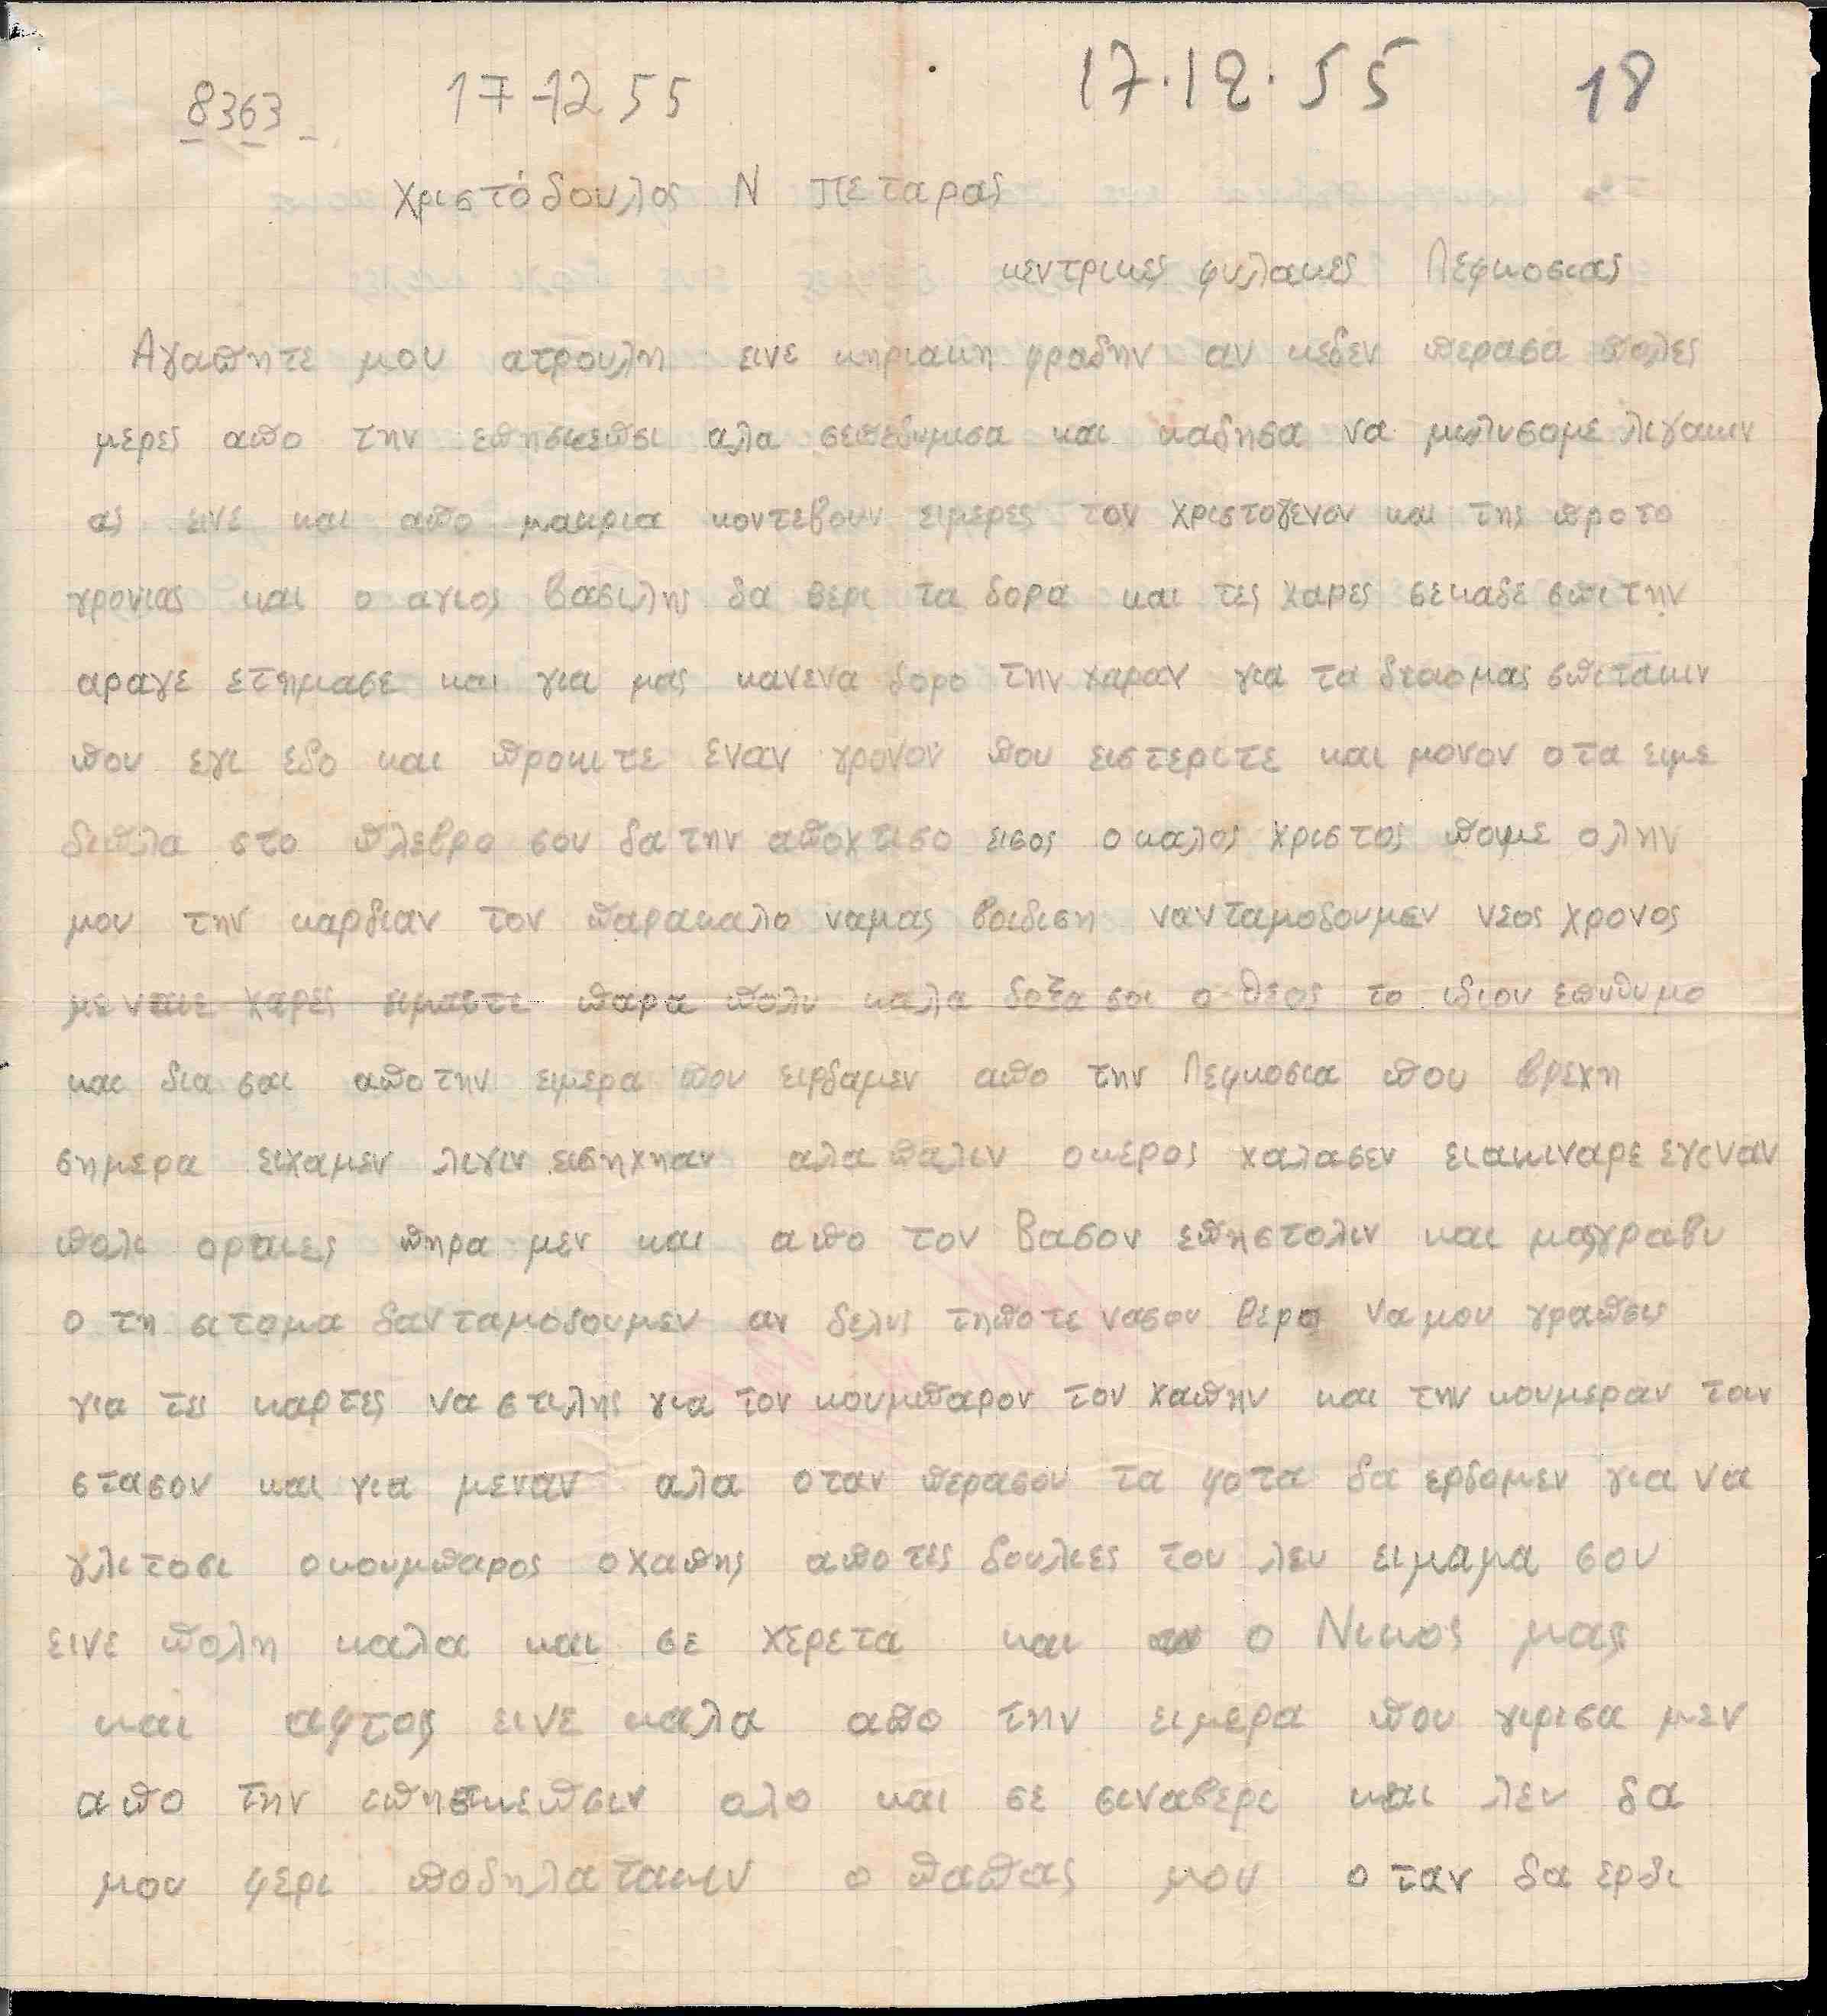 8363 17-12 55 17.12.55 18
Χριστόδουλος Ν Πεταρας
κεντρικες φυλακες Λεφκοσιας
Αγαπητε μου ατρουλη εινε κηριακη φραδην αν κεδεν περασα πολες
μερες απο την επησκεπσι αλα σεπεδυμισα και καδησα να μιλυσομε λιγακιν
ας εινε και απο μακρια κοντεβουν ειμερες τον χριστογενον και της προτο
χρονιας και ο αγιος βασιλης δα βερι τα δορα και τες χαρες σεκαδε σπιτην
αραγε ετημασε και για μας κανενα δορο την χαραν για τα δικομας σπιτακιν
που εχι εδο και προκιτε εναν χρονον που ειστεριτε και μονον οτα ειμε
διπλα στο πλεβρο σου δα την αποχτισο εισος ο καλος χριστος πομε ολην
μου την καρδιαν τον παρακαλο ναμας βοιδιση νανταμοδουμεν νεος χρονος
με νεαιε χαρες ειμαστε παρα πολυ καλα δοξα σοι ο θεος το ιδιον επυθυμο
και δια σαι απο την ειμερα που ειρδαμεν απο την Λεφκοσια που βρεχη
σημερα ειχαμεν λιγιν εισηχηαν αλα παλιν οκερος χαλασεν ειακιναρε εγιναν
πολι οραιες πηρα μεν και απο τον Βασον επηστολιν και μαςγραβι
ο τη σιτομα δανταμοδουμεν αν δελις τηποτε νασου βερο ναμου γραπσις
για τες καρτες να στιλης για τον κουμπαρον τον χαπην και την κουμεραν τον
στασον και για μεναν αλα οταν περασον τα φοτα δα ερδομεν για να
γλιτοσι οκουμπαρος οχαπης απο τες δουλιες του λεν ειμαμα σου
εινε πολη καλα και σε χερετα και ο Νικος μας
και αφτος εινε καλα απο την ειμερα που γιρισα μεν
απο την επησκεπσιν ολο και σε σιναβερι και λεν δα
μου φερι ποδηλατακιν ο παπας μου οταν δα ερδι